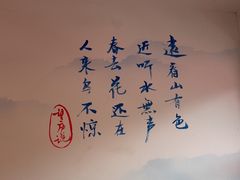 遠看山有色
近听水無声
春去花还在
人来鸟不惊